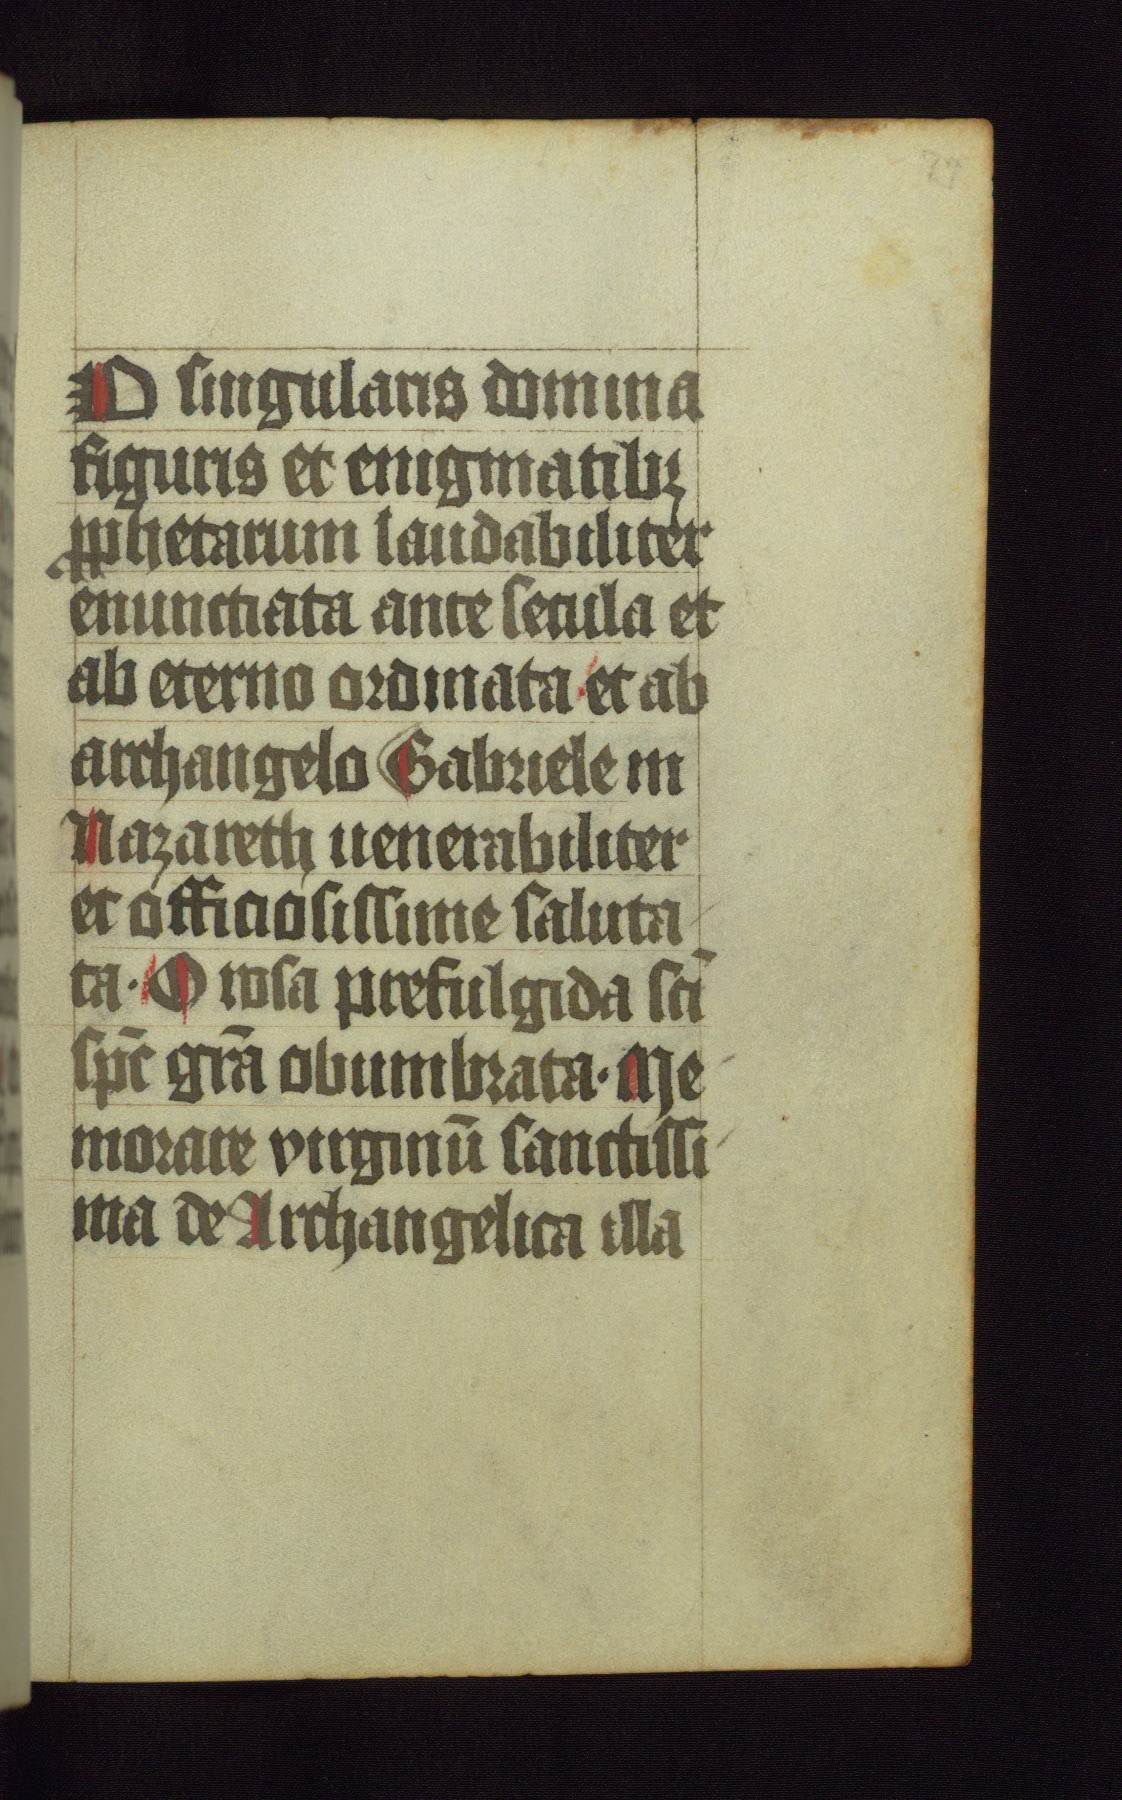 O singularis domina
figuris et enigmatibꝫ
ꝓphetarum laudabiliter
enunctiata ante secula et
ab eterno ordinata· et ab
archangelo Gabriele in
Nazareth uenerabiliter
et officiosissime saluta
ta· O rosa prefulgida sc̄i
sp̄c gr̄a obumbrata· Me
morare virginū sanctissi
ma de Archangelica illa